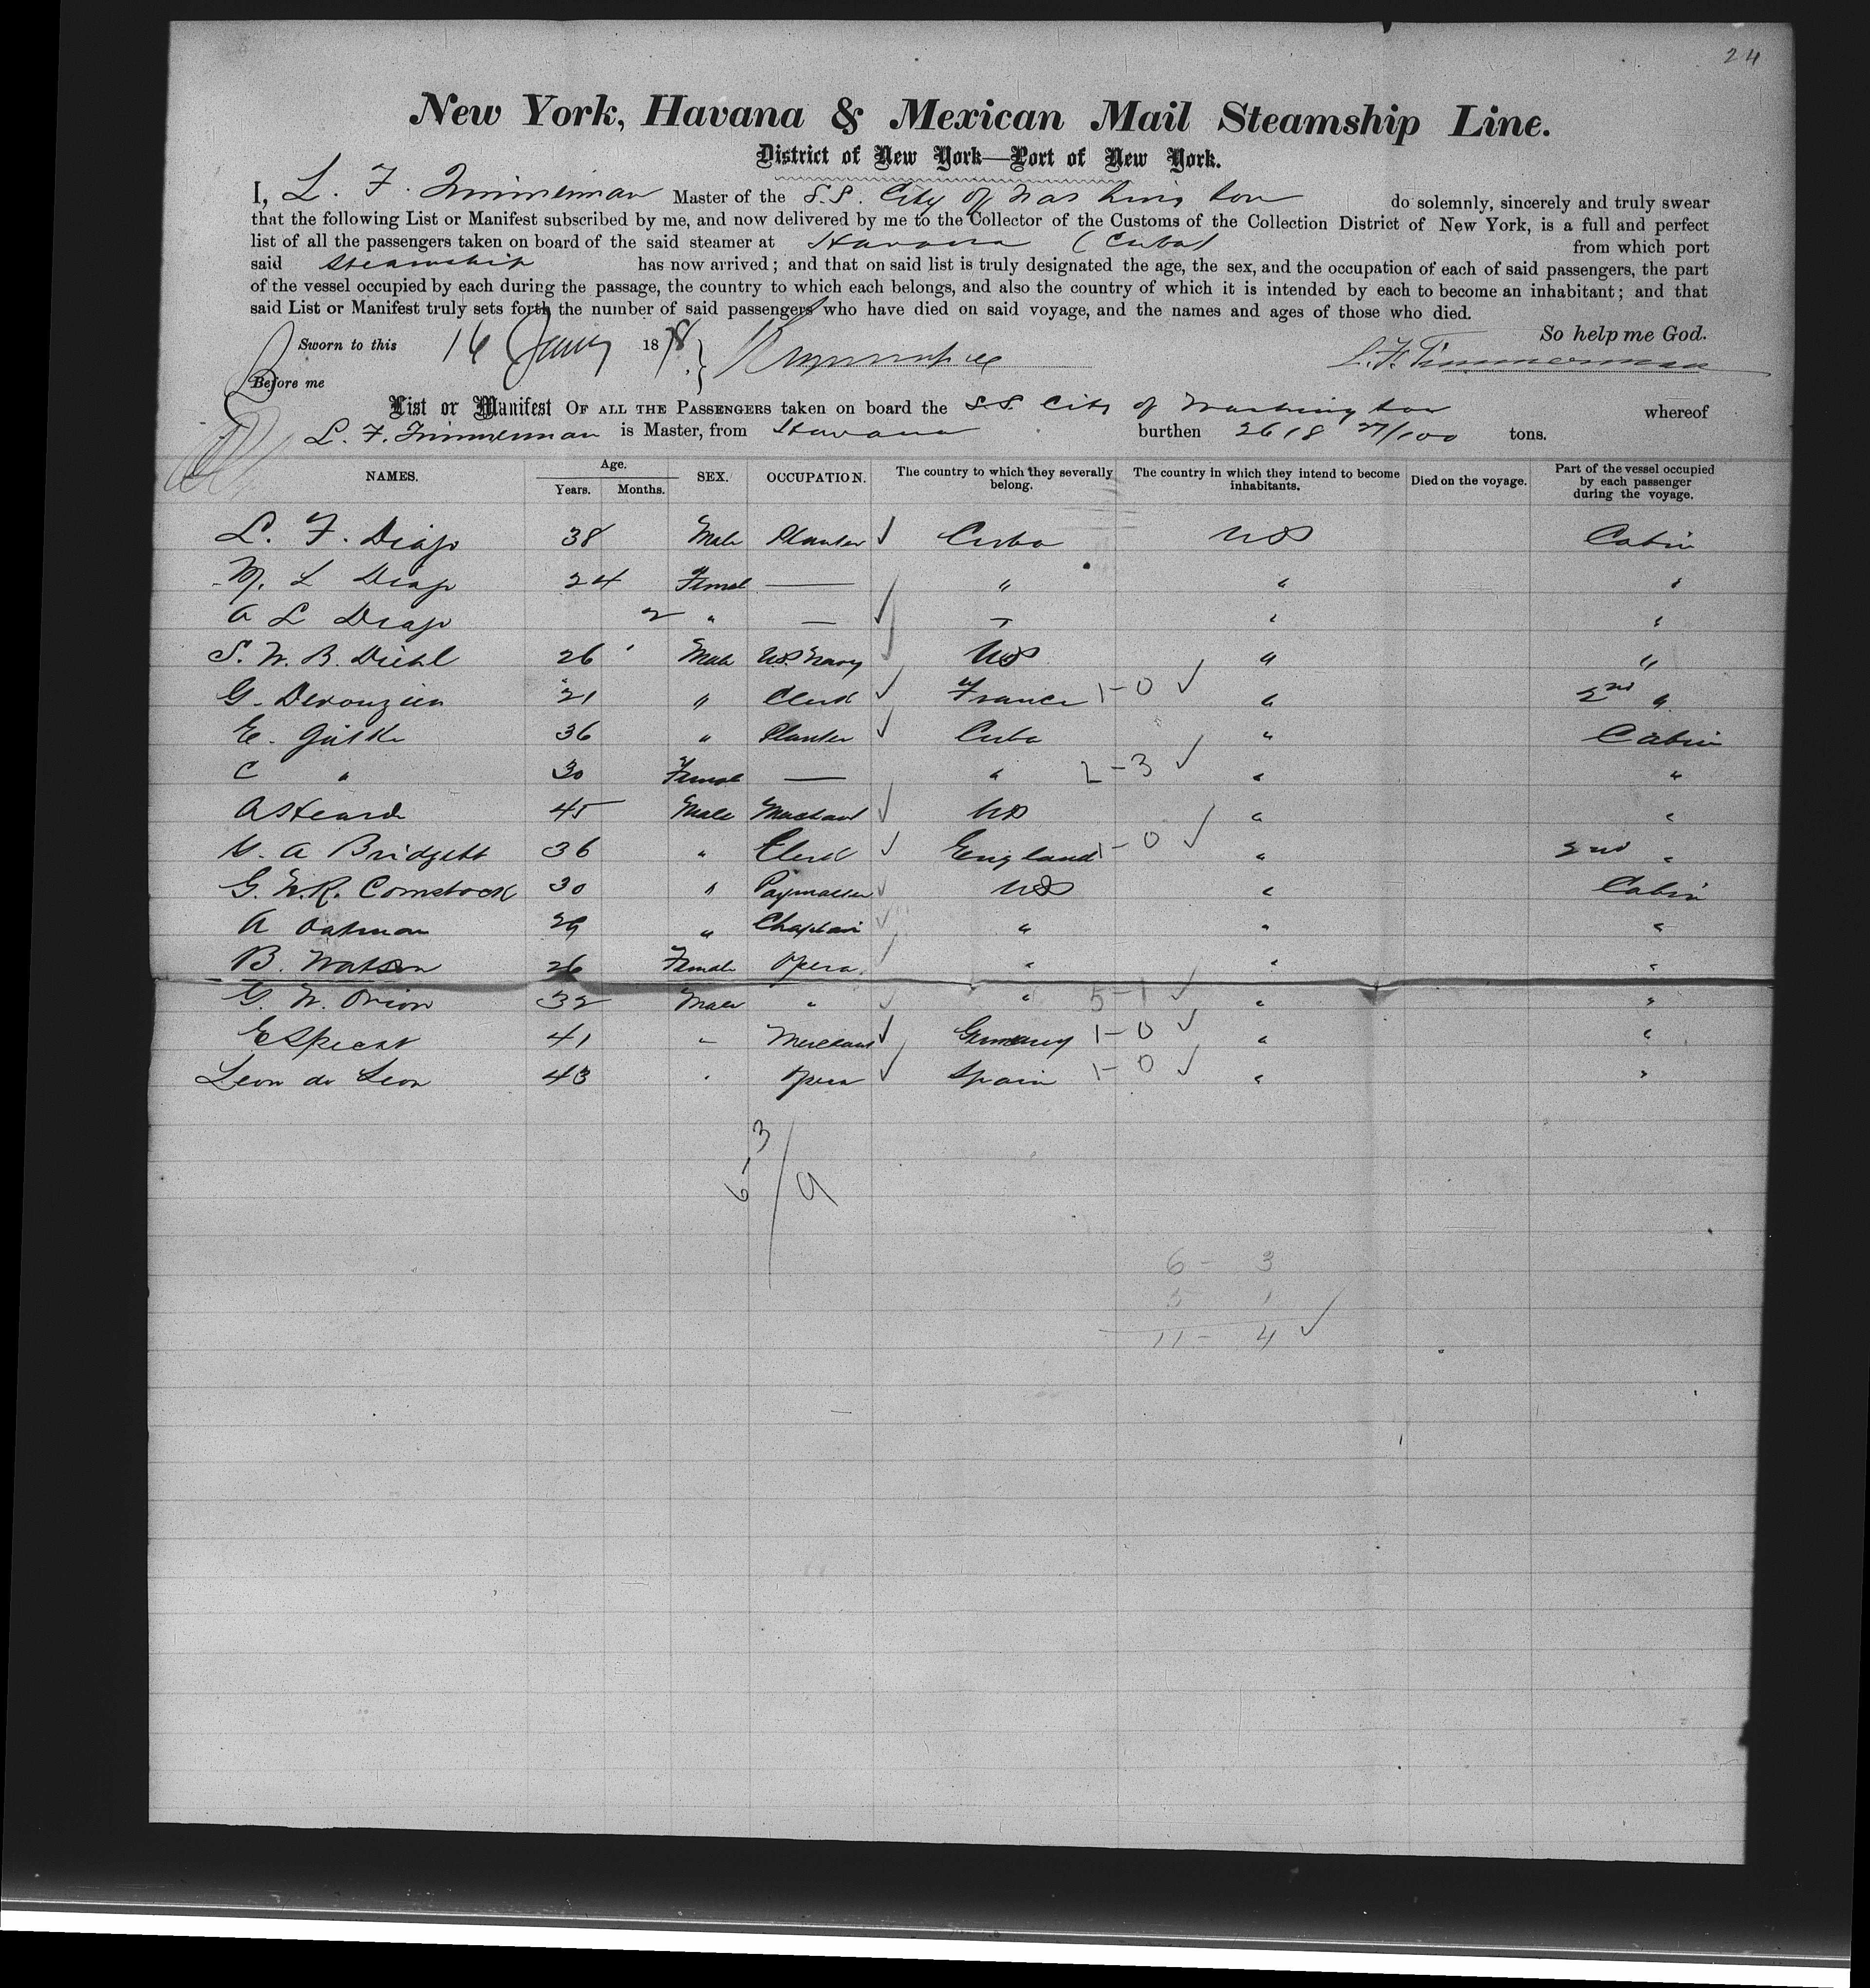 24
New York, Havana & Mexican Mail Steamship Line.
District of New York—Port of New York.
I, L. F. Timmerman Master of the S.S. City of Washington do solemnly, sincerely and truly swear
that the following List or Manifest subscribed by me, and now delivered by me to the Collector of the Customs of the Collection District of New York, is a full and perfect
list of all the passengers taken on board of the said steamer at Havana (Cuba) from which port
said Steamship has now arrived; and that on said list is truly designated the age, the sex, and the occupation of each of said passengers, the part
of the vessel occupied by each during the passage, the country to which each belongs, and also the country of which it is intended by each to become an inhabitant; and that
said List or Manifest truly sets forth the number of said passengers who have died on said voyage, and the names and ages of those who died.
So help me God.
Sworn to this 16 Jany 1878
L. F. Timmerman
Before me
List or Manifest OF ALL THE PASSENGERS taken on board the S.S. City of Washington whereof
L. F. Timmerman is Master, from Havana burthen 2618 27/100 tons.
NAMES. Age. Years. Months. SEX. OCCUPATION. The country to which they severally belong. The country in which they intend to become inhabitants. Died on the voyage. Part of the vessel occupied by each passenger during the voyage.
L. F. Diago 38 Male Planter ✓ Cuba US Cabin
M. L Diago 24 Femal — " " "
A L Diago 2 " — ✓ " " "
S. W. B. Diehl 26 Male U.S. Navy ✓ US " "
G. 21 " Clerk ✓ France 1-0 ✓ " 2nd "
E. 36 " Planter ✓ Cuba " Cabin
C " 30 Female — " 2-3 ✓ " "
A Heard 45 Male Merchant ✓ US " "
A Bridgett 36 " Clerk ✓ England 1-0 ✓ " 2nd "
G. W. R. Comstock 30 " Paymaster ✓ US " Cabin
A Oatman 29 " Chaplain ✓ " " "
B. Watson 26 Female Opera ✓ " " "
G. W. Orion 32 Male " ✓ " 5-1 ✓ " "
E Specht 41 " Merchant ✓ Germany 1-0 ✓ " "
Leon de Leon 43 " Opera ✓ Spain 1-0 ✓ " "
6-3 / 9
6 - 3
5 1
11 - 4 ✓